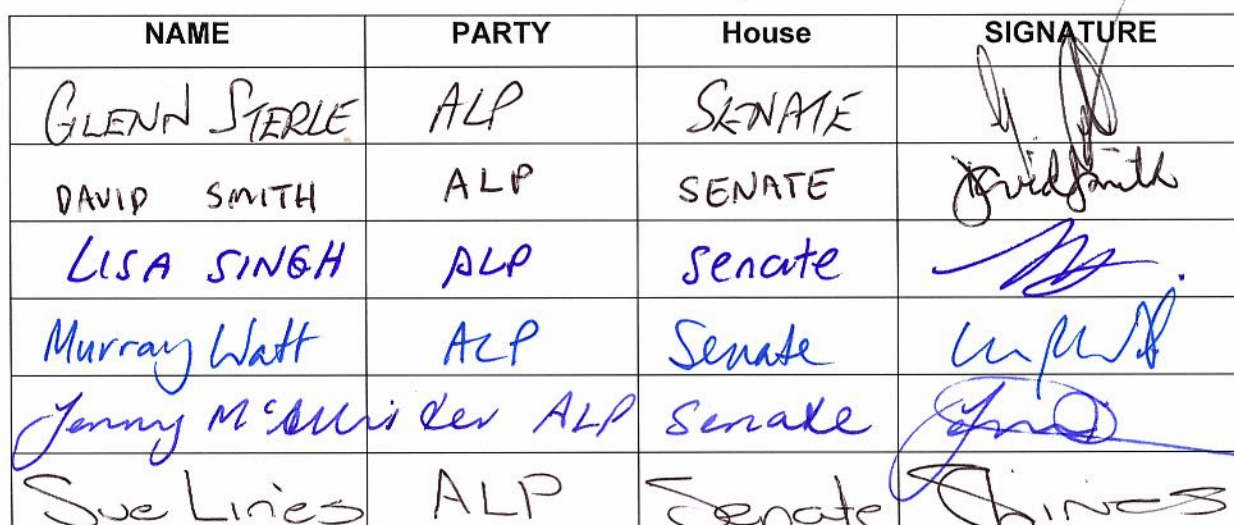 NAME PARTY House SIGNATURE
GLENN STERLE ALP SENATE
DAVID SMITH ALP SENATE David Smith
LISA SINGH ALP Senate
Murray Watt ALP Senate
Jenny McAllister ALP Senate
Sue Lines ALP Senate SLines